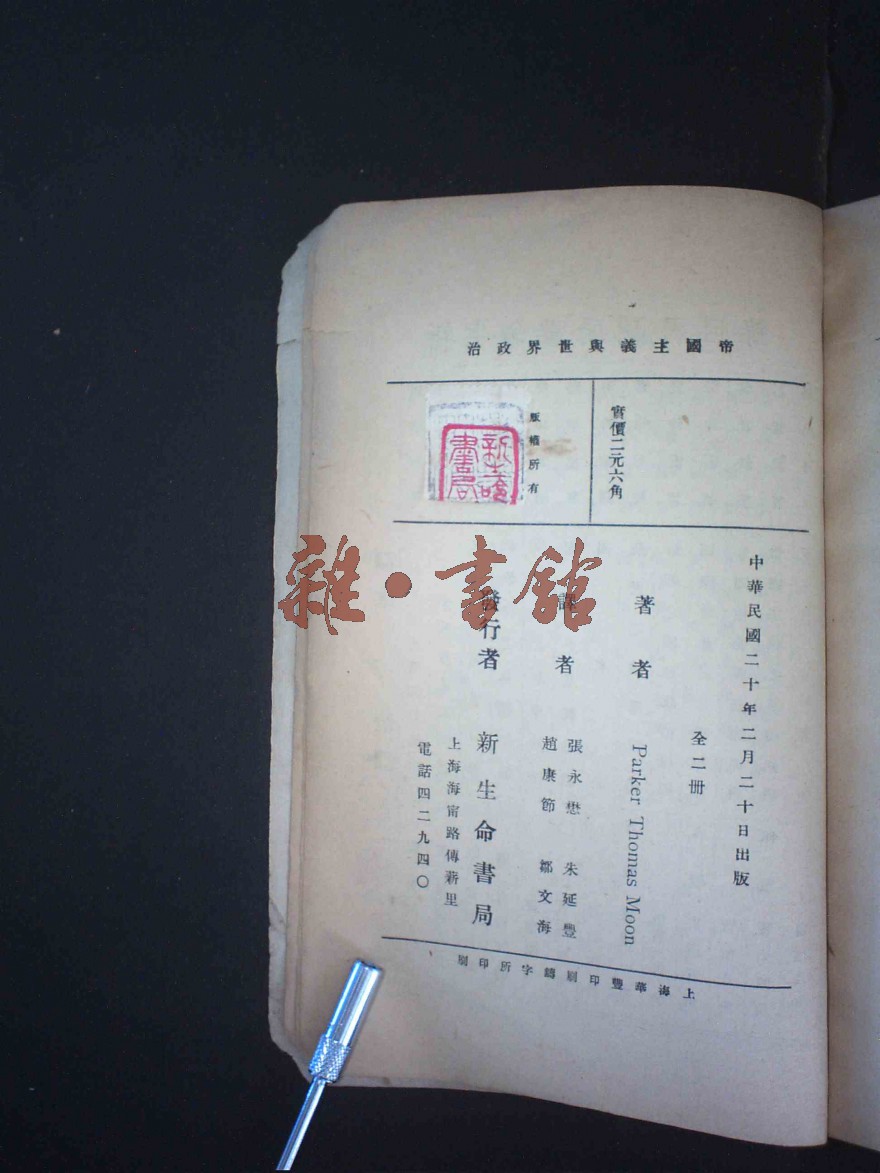 帝國主義與世界政治
實價二元六角
版權所有
新生命書局
中華民國二十年二月二十日出版
全二冊
著者 Parker Thomas Moon
譯者 張永懋 朱延豐
趙康節 鄒文海
發行者 新生命書局
上海海甯路傳薪里
電話四二九四〇
上海華豐印刷鑄字所印刷
雜·書館